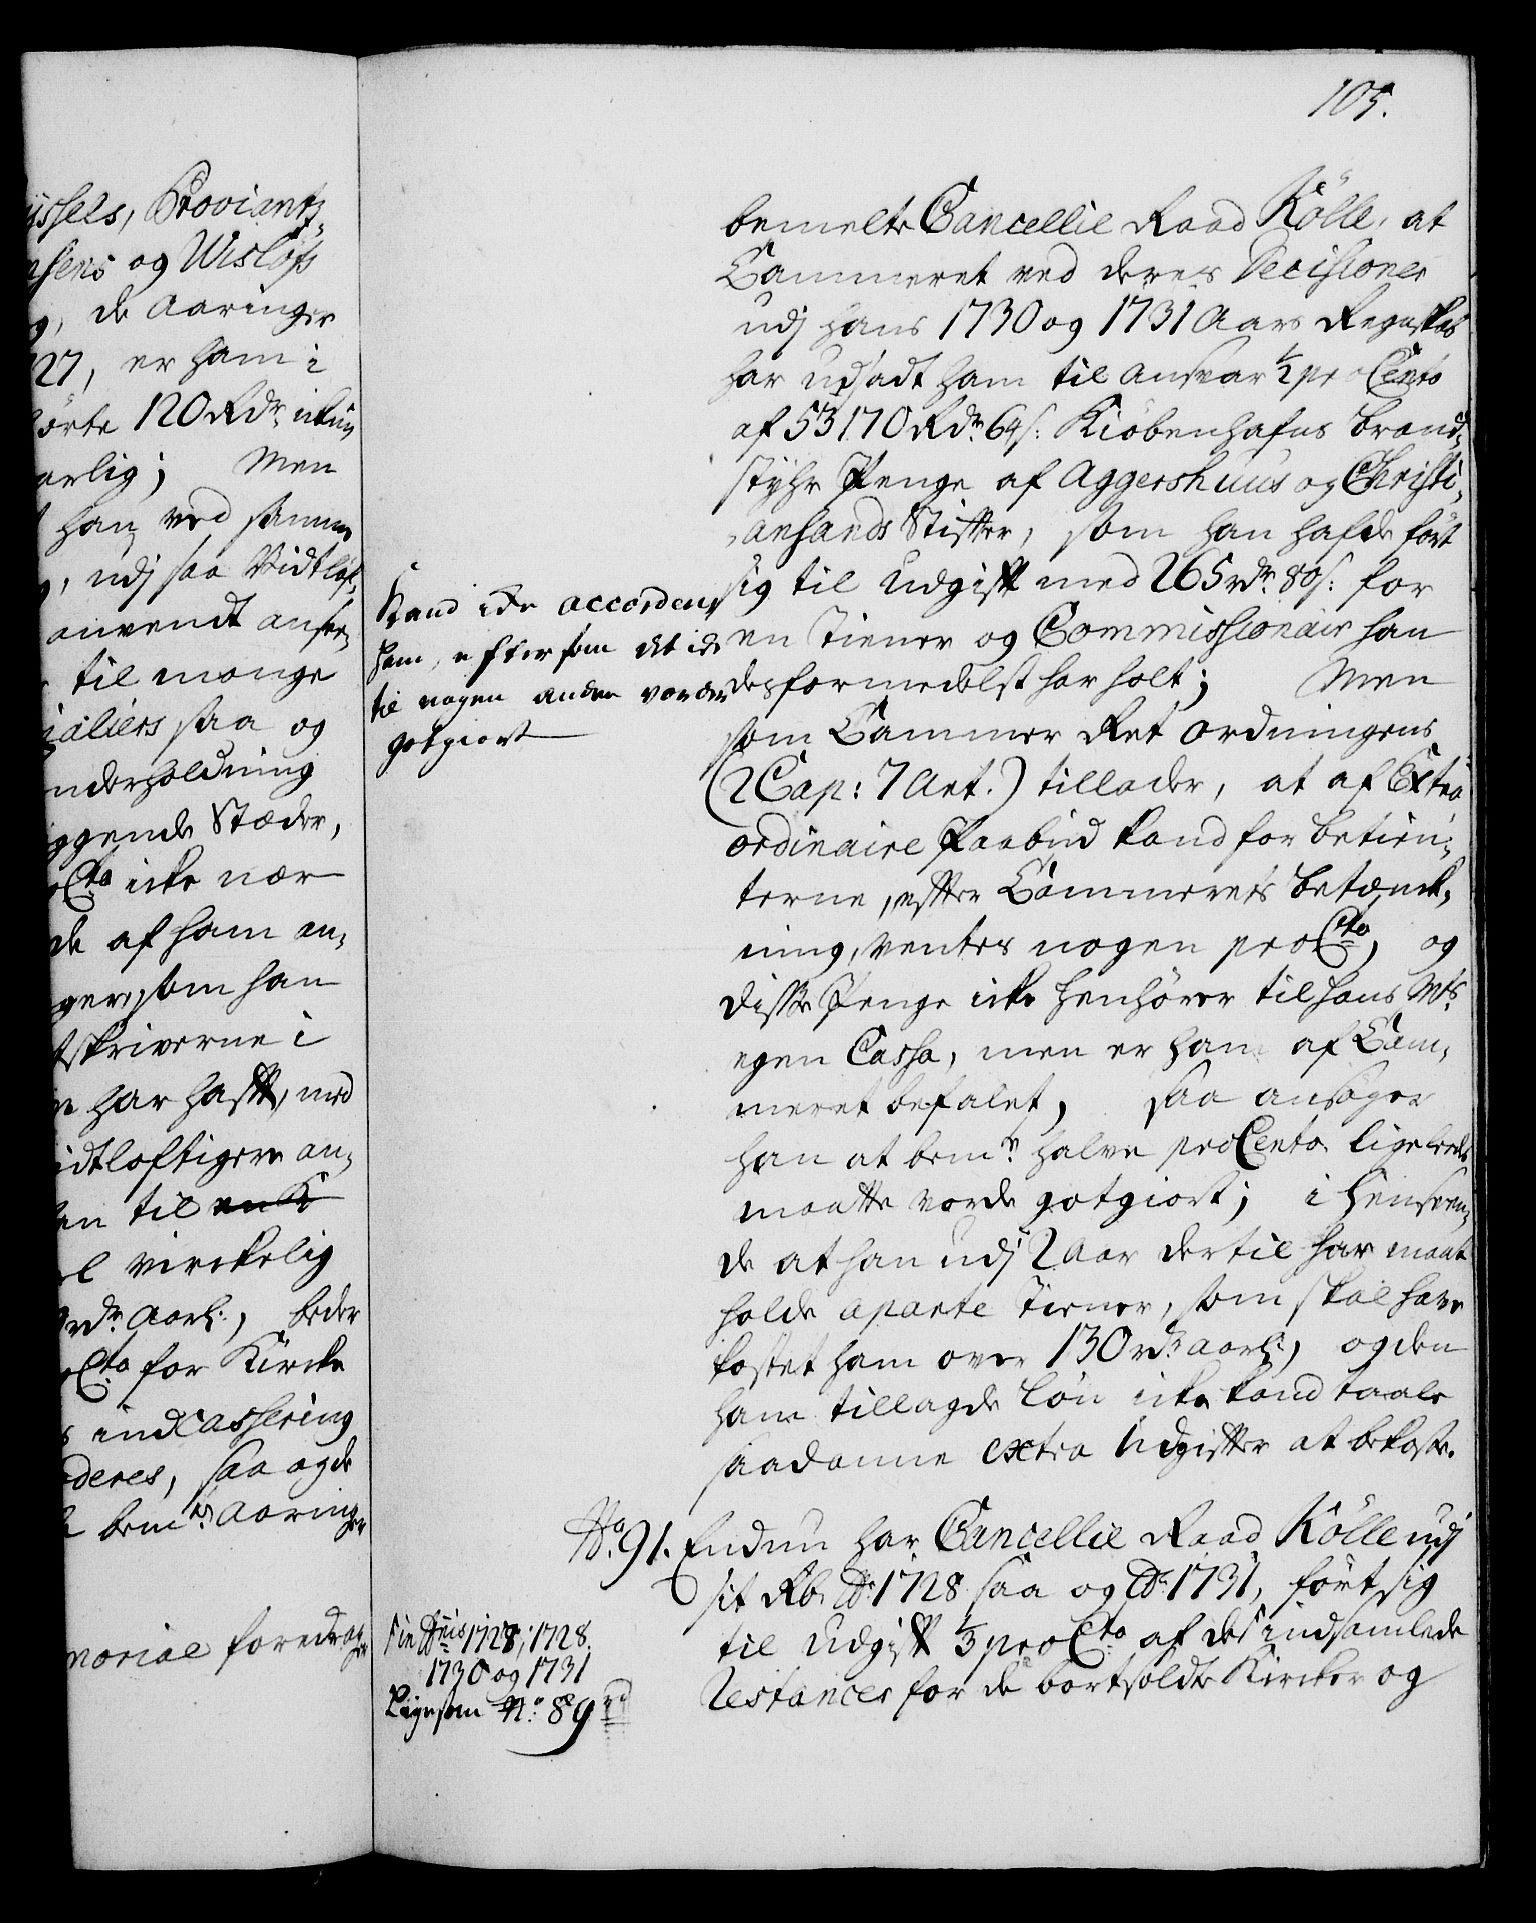 105.
issels, Proviantz,
nsens og Wisløfs
de Aaringer
27, er ham i
førte 120 Rdr. ickun
aarlig; Men
han ved samme
udj saa Vidtløf,
anvendt anseer,
til mange
ialiers saa og
nderholdning
ggende Stæder,
Cto icke nær
de af ham an,
ger, som han
tskriverne i
har hafft, med
idtløftigere an,
en til
el virckelig
rdr. Aarl:, beder
Cto for Kircke
indCassering
deres, saa og de
bemte Aaringer
morial foredrag
bemelte Cancellie Raad Kölle, at
Cammeret ved deres Decisioner
udj hans 1730 og 1731 Aars Regnskab
har udsadt ham til Ansvar ½ pro Cento
af 53170 Rdr. 64 s: Kiøbenhafns brand,
styhr Penge af Aggershuus og Christi,
,ansands Stifter, som han hafde ført
sig til Udgift med 265 rdr. 80 s: for
en Tiener og Commissionair han
desformedelst har holt; Men
som Cammer Ret Ordningens
(2 Cap: 7 Art.) tillader, at af Extra
ordinaire Paabud kand for betien,
terne, effter Cammerets betænck,
ning, ventes nogen pro Cto, og
disse Penge icke henhører til hans Mts
egen Cassa, men er ham af Cam,
meret befalet, saa ansøger
han at bemte halve pro Cento ligeleedes
maatte vorde gotgiort; i henseen,
de at han udj 2 Aar dertil har maat
holde aparte Tiener, som skal have
kostet ham over 130 rdr. aarl:, og den
ham tillagde Løn icke kand taale
saadanne extra Udgiffter at bekoste.
Kand icke accorderes
ham, eftersom det icke
til nogen anden vorder
gotgiort
No. 91. Endnu har Cancellie Raad Kölle udj
sit Rb. Ao. 1728 saa og Ao. 1731, ført sig
til Udgift ⅓ pro Cto af des indsamlede
Restancer for de bortsoldte Kircker og
1728.
1730 og 1731
Ligesom No. 89